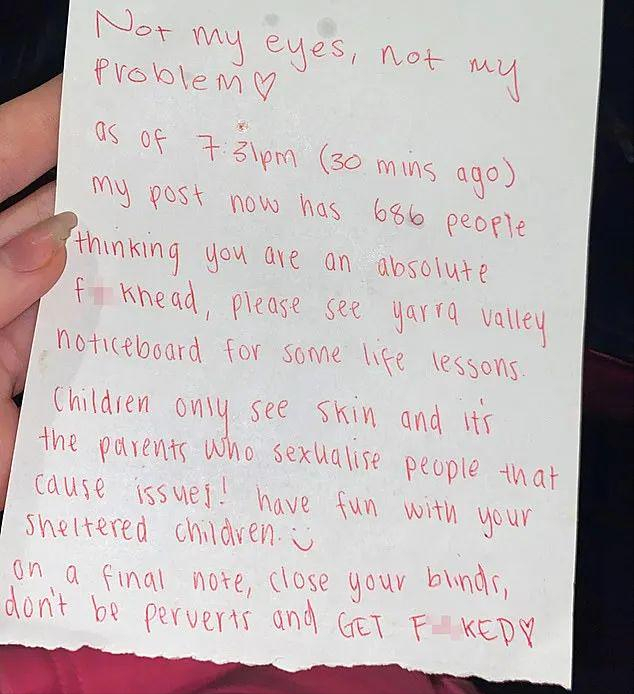 Not my eyes, not my
problem♡
as of 7:31pm (30 mins ago)
my post now has 686 people
thinking you are an absolute
f khead, please see yarra valley
noticeboard for some life lessons.
Children only see skin and it's
the parents who sexualise people that
cause issues! have fun with your
sheltered children. :)
on a final note, close your blinds,
don't be perverts and GET F KED♡